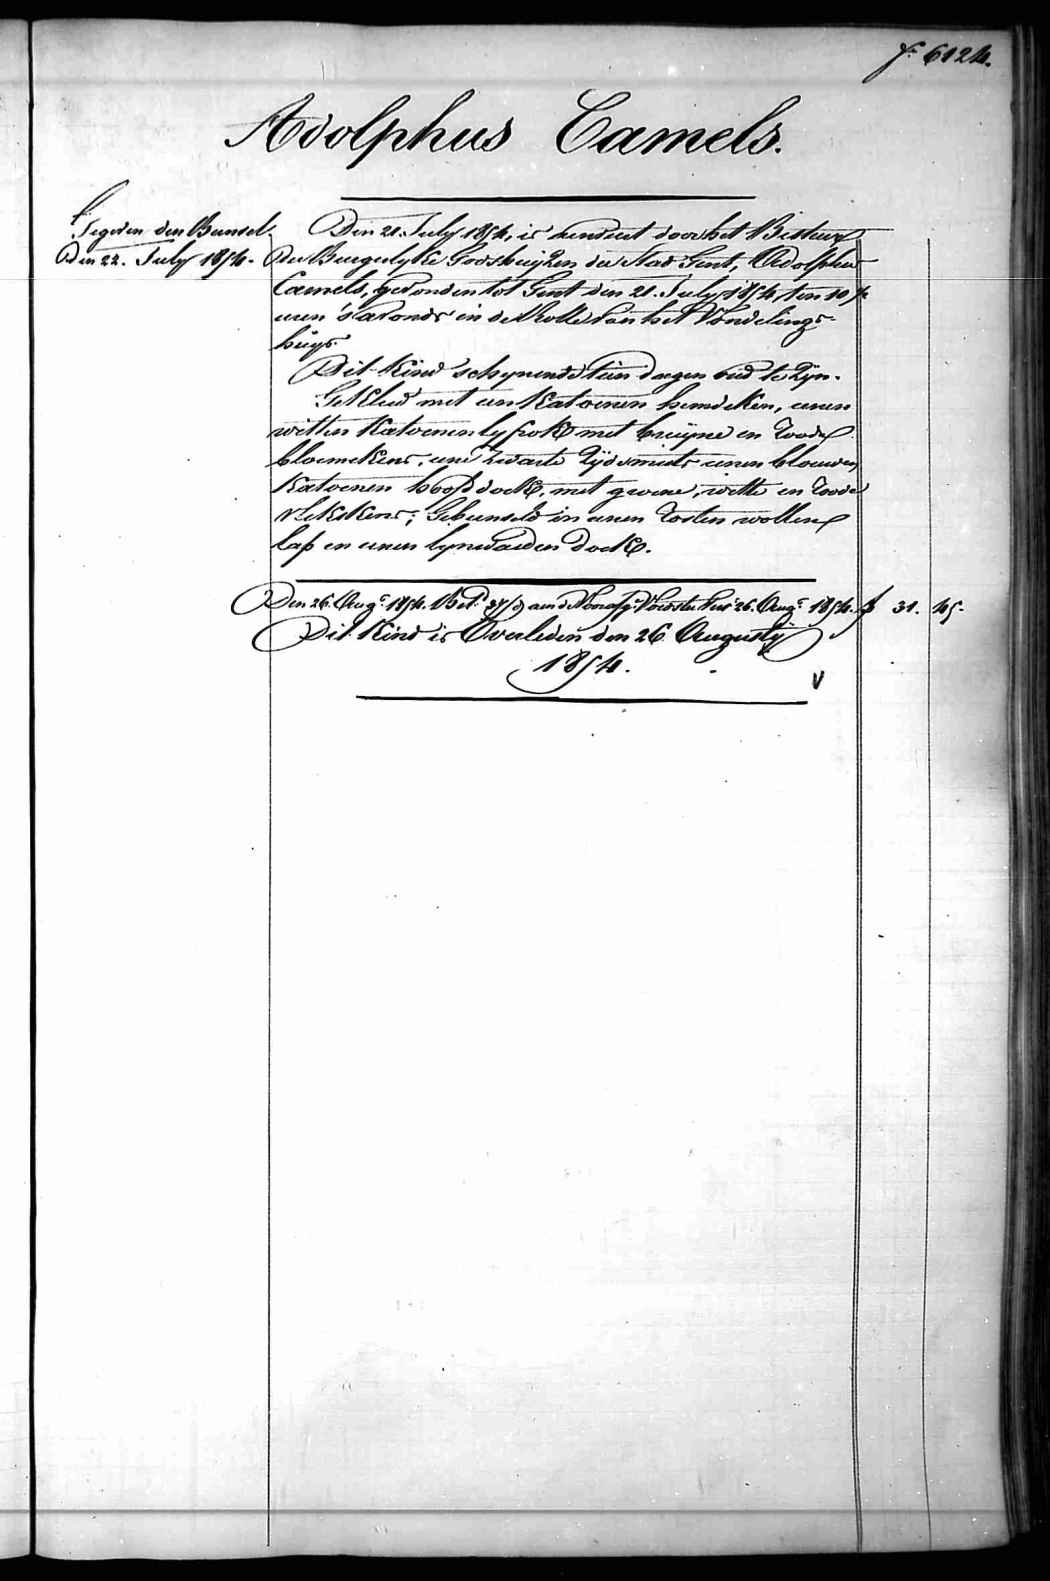 f° 6124.
Adolphus Camels.
Gegeven den Bunsel
Den 22. July 1854.
Den 21. July 1854, is
door het Bestuer
der Burgerlyke Godshuyzen der Stad Gent, Adolphus
Camels, gevonden tot Gent den 21. July 1854, ten 10
uren 's avonds in de Rolle van het Vondelings-
huys.
Dit Kind schynende tien dagen oud te zyn.
Gekleed met een Katoenen hemdeken, eenen
witten Katoenen lyfrok met bruyne en roode
bloemekens, eene zwarte zyde muts eenen blauwen
Katoenen hoofddoek, met groene, witte en roode
vlekskens; Gebunseld in eenen rosten wollen
lap en eenen lynwaeden doek.
Den 26. Aug. 1854. Bet. aen de Voedster tot 26. Aug. 1854. f 31. 45.
Dit Kind is Overleden den 26 Augusty
1854.